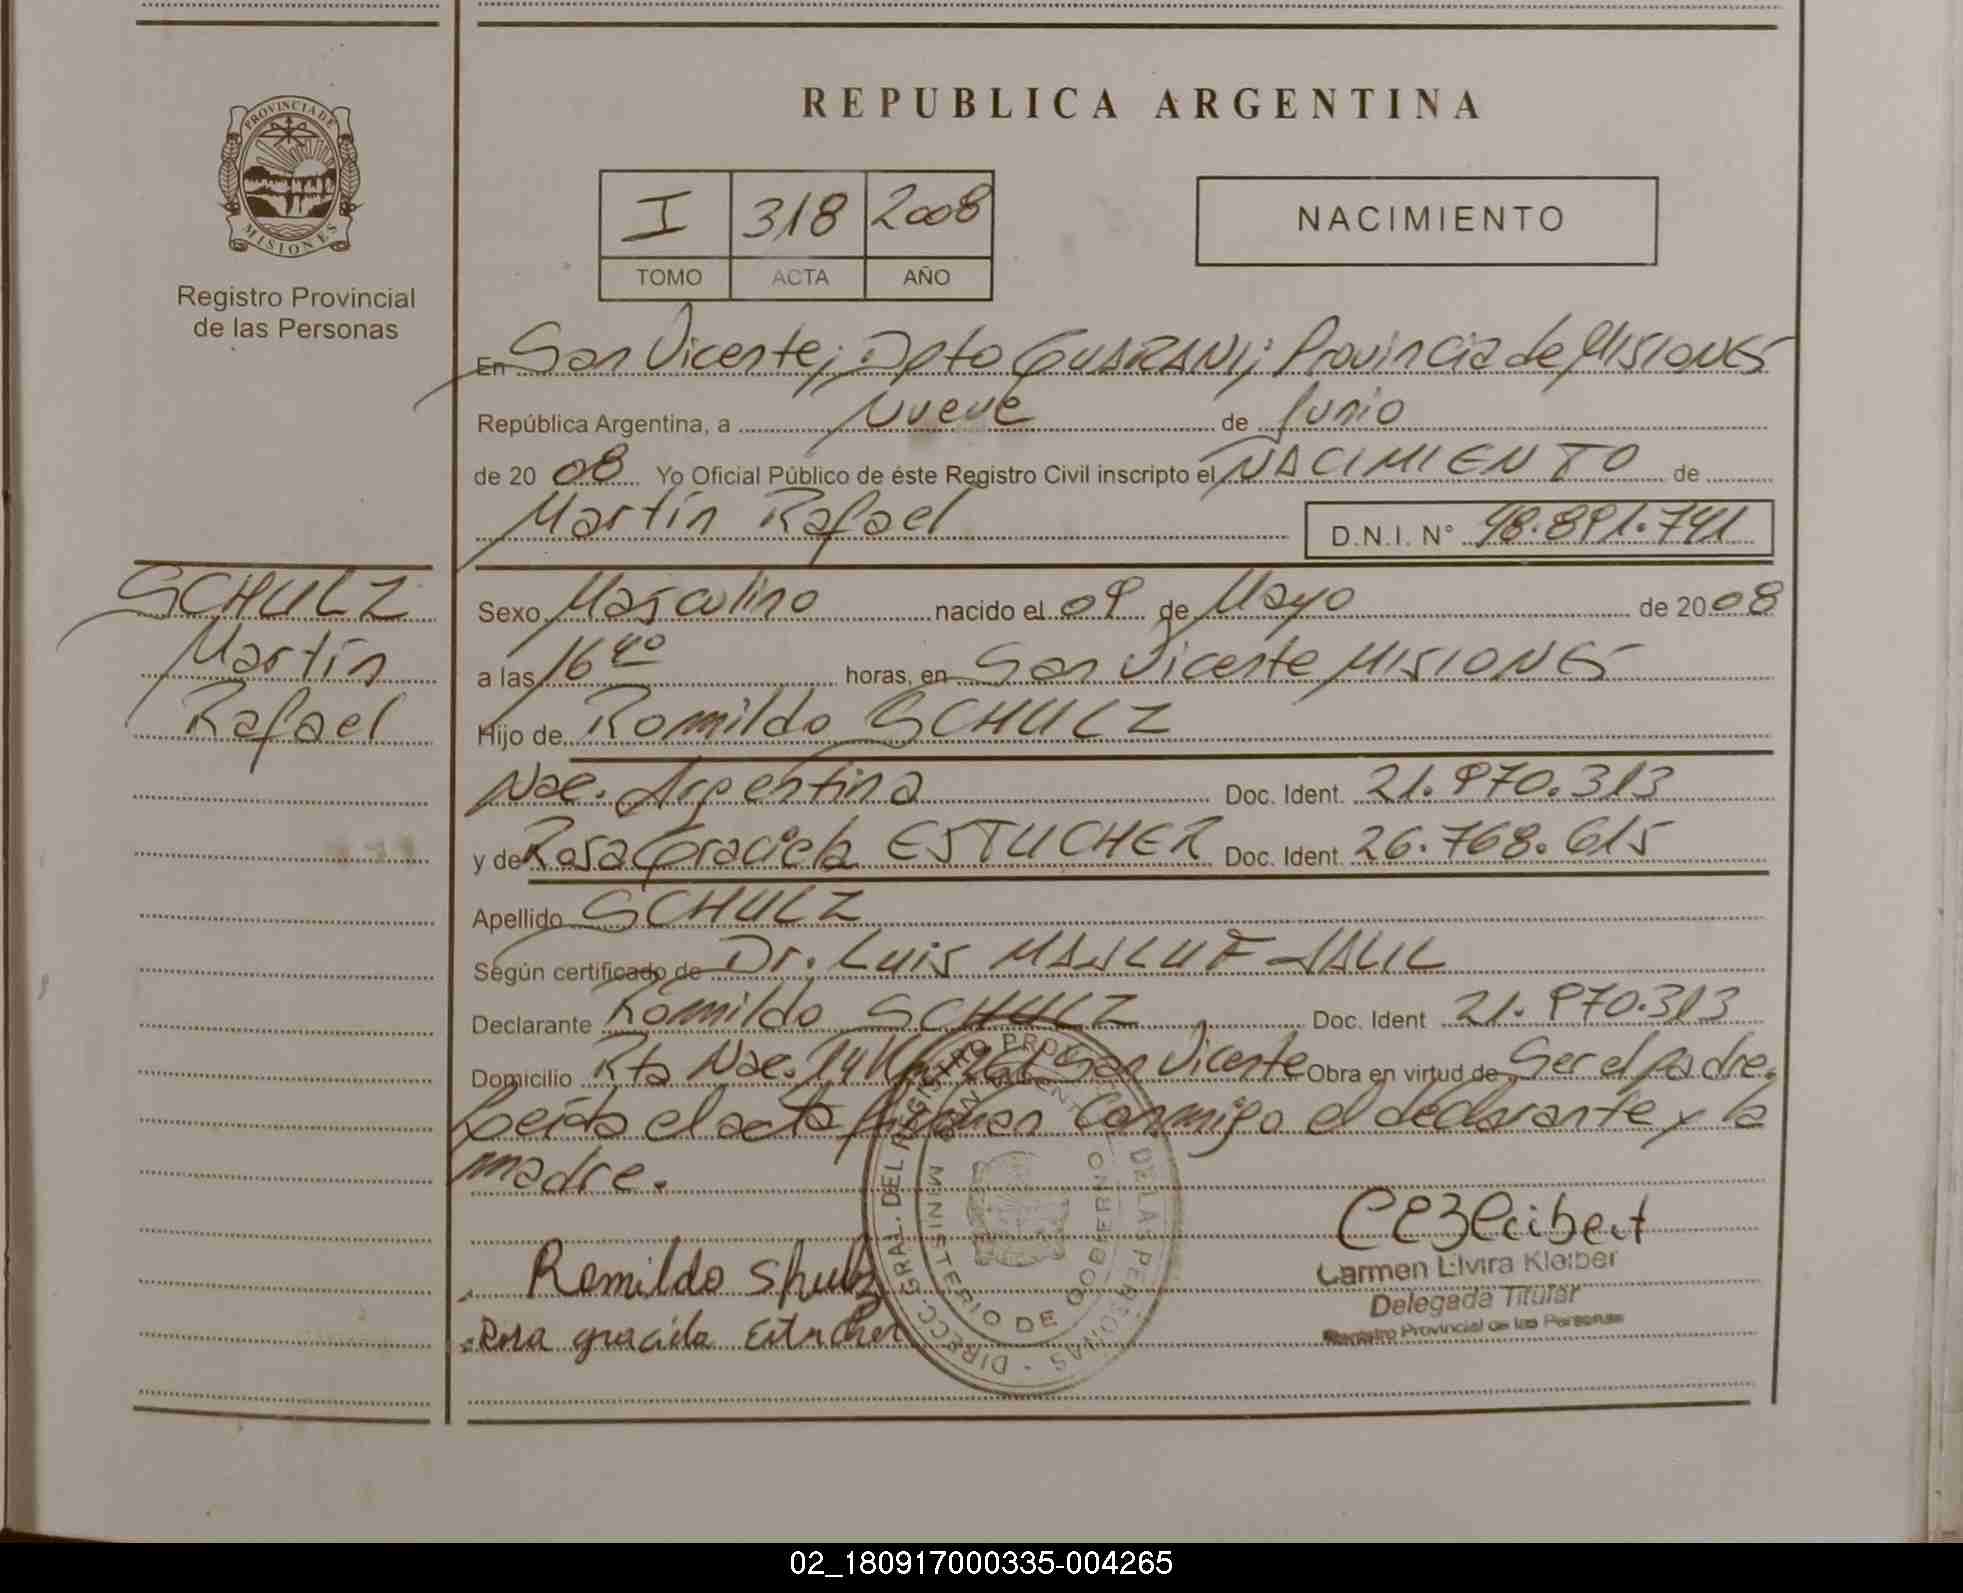 PROVINCIA DE
MISIONES
Registro Provincial
de las Personas
SCHULZ
Martín
Rafael
REPUBLICA ARGENTINA
I 318 2008
TOMO ACTA AÑO
NACIMIENTO
En San Vicente; Dpto GUARANI; Provincia de MISIONES
República Argentina, a Nueve de Junio
de 2008 Yo Oficial Público de éste Registro Civil inscripto el NACIMIENTO de
Martín Rafael D.N.I. N° 48.891.741
Sexo Masculino nacido el 09 de Mayo de 2008
a las 16 40 horas, en San Vicente MISIONES
Hijo de Romildo SCHULZ
Nac. Argentina Doc. Ident. 21.970.313
y de Rosa Graciela ESTUCHER Doc. Ident. 26.768.615
Apellido SCHULZ
Según certificado de Dr. Luis MASLUF JALIL
Declarante Romildo SCHULZ Doc. Ident 21.970.313
Domicilio Rta Nac. 14 San Vicente Obra en virtud de Ser el padre.
Leída el acta firman conmigo el declarante y la
madre.
DIRECC. GRAL. DEL REGISTRO PROV. DE LAS PERSONAS
MINISTERIO DE GOBIERNO
Romildo Shulz
Rosa graciela Estucher
Carmen Elvira Kleiber
Delegada Titular
Registro Provincial de las Personas
02_180917000335-004265